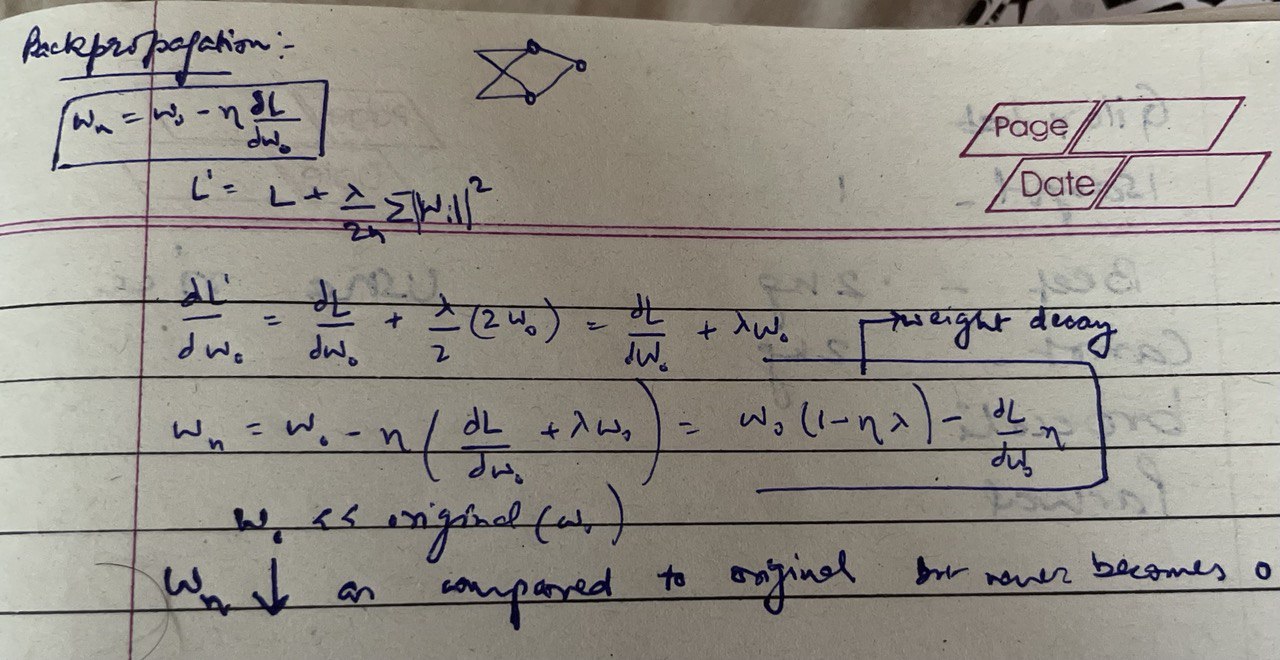 Backpropagation:-
Wn = W0 - η dL/dW0
Page
L' = L + λ/2n Σ||Wi||²
Date
dL'/dW0 = dL/dW0 + λ/2 (2W0) = dL/dW0 + λW0
weight decay
Wn = W0 - η (dL/dW0 + λW0) = W0 (1-ηλ) - dL/dW0 η
W0 << original (W0)
Wn ↓ as compared to original but never becomes 0